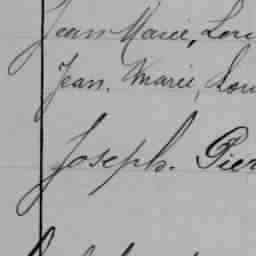 Jean Marie, Lou
Jean. Marie, Lou
Joseph. Pier